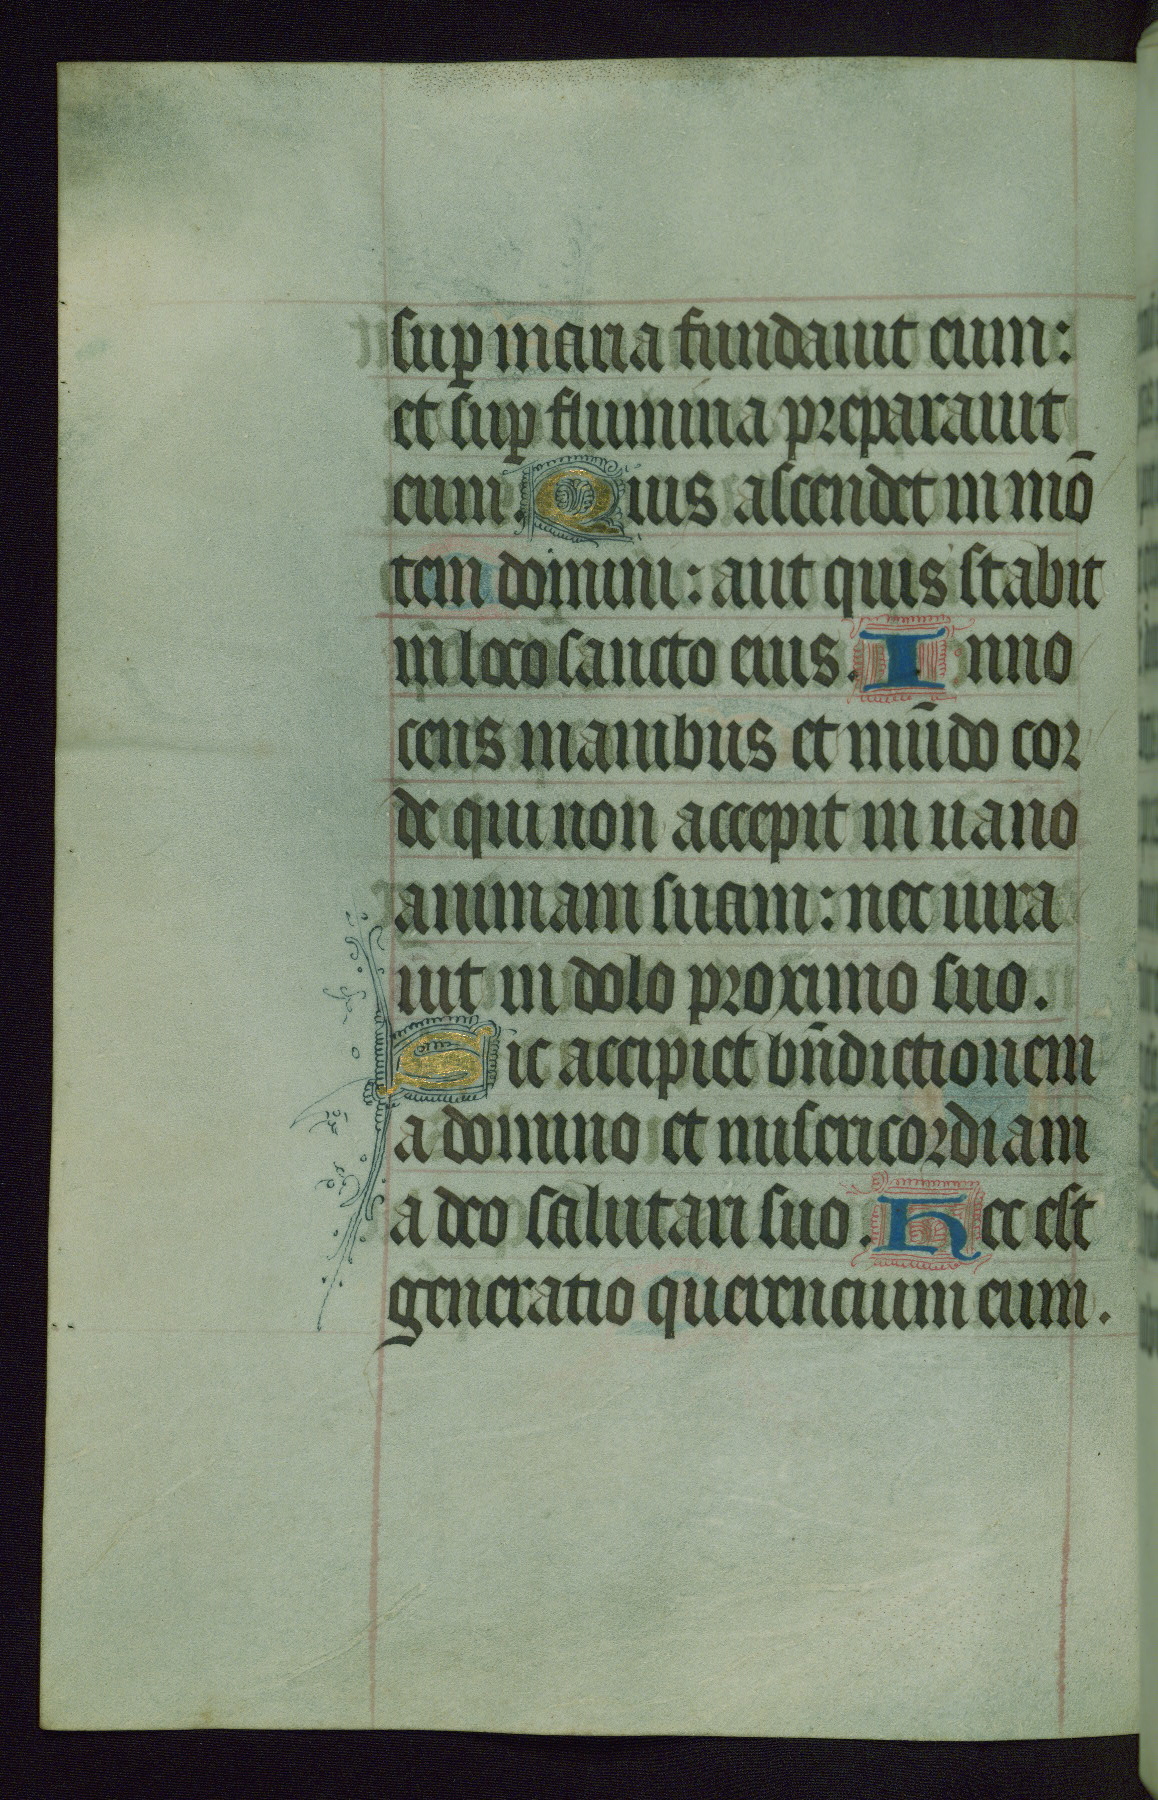 sup̲ maria fundauit eum:
et sup̲ flumina preparauit
eum. Quis ascendet in mō
tem domini: aut quis stabit
in loco sancto eius. Inno
cens manibus et mūdo cor
de qui non accepit in uano
animam suam: nec iura
uit in dolo proximo suo.
Hic accipiet bn̄dictionem
a domino et misericordiam
a deo salutari suo. Hec est
generatio querencium eum.